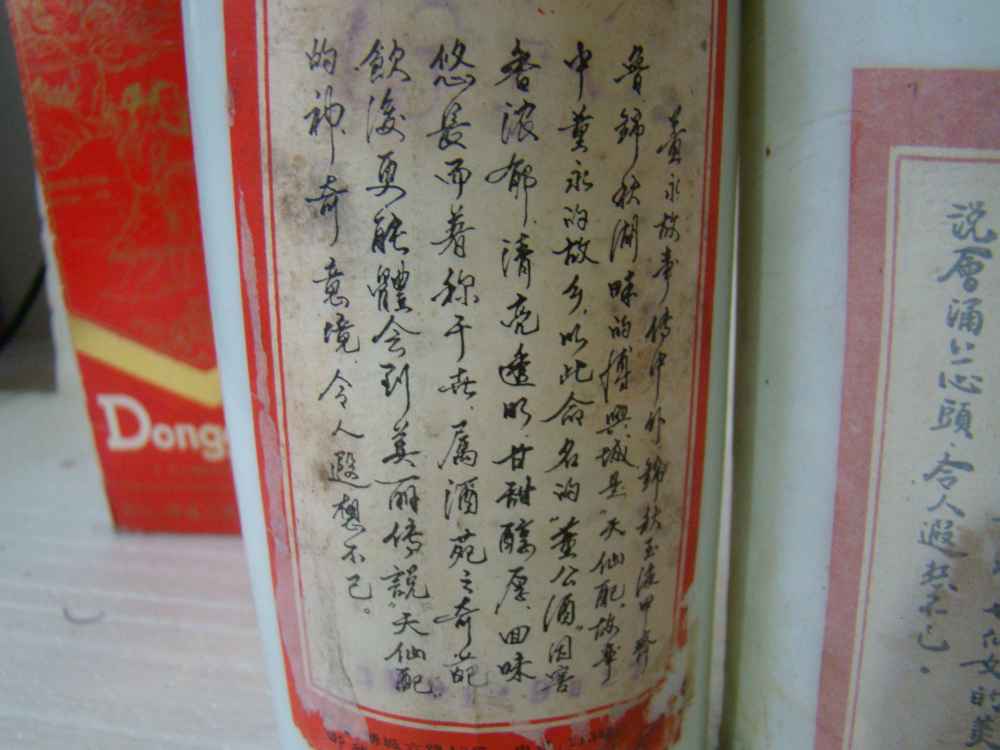 董永故事传中外 锦秋玉液甲齐
鲁 锦秋湖畔的博興城是“天仙配”故事
中董永的故乡,以此命名的“董公酒”因窖
香浓郁、清亮透明、甘甜醇厚、回味
悠長而著称于世,属酒苑之奇葩
飲後更能體会到美丽傳説“天仙配”
的神奇意境,令人遐想不已。
说層涌上心頭,令人遐
不已。
七仙女的美
Dong